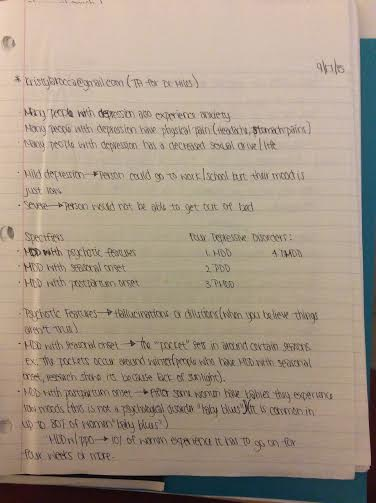 9/17/15
* kristylarocca@gmail.com (TA for Dr. Miles)
Many people with depression also experience anxiety
Many people with depression have physical pain (Headache, Stomach pains)
Many people with depression has a decreased sexual drive/life
· Mild depression → Person could go to work/school but their mood is
just low.
· Severe → Person would not be able to get out of bed
Specifiers Four Depressive Disorders:
· MDD with psychotic features 1. MDD 4.
· MDD with seasonal onset 2. PDD
· MDD with postpartum onset 3. PMDD
· Psychotic Features → Hallucinations or dilutions (when you believe things
aren't true)
· MDD with seasonal onset → the "pocket" sets in around certain seasons.
Ex. The pockets occur around winter (people who have MDD with seasonal
onset, research shows its because lack of sunlight).
· MDD with postpartum onset → After some women have babies they experience
low moods (this is not a psychological disorder "baby blues") (it is common in
up to 80% of women "baby blues")
MDD w/ PPO → 10% of women experience it has to go on for
four weeks or more.